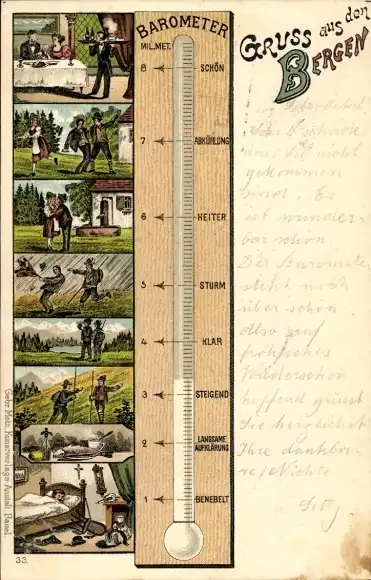 BAROMETER
MIL.MET.
8 SCHÖN
7 ABKÜHLUNG
6 HEITER
5 STURM
4 KLAR
3 STEIGEND
2 LANGSAME
AUFKLÄRUNG
1 BENEBELT
GRUSS aus den
BERGEN
dass Sie nicht
gekommen
sind. Es
ist wunder-
bar schön.
Der Barometer
steht noch
über schön.
Also auf
fröhliches
Wiedersehen
hoffend grüsst
Sie herzlichst
Ihre dankba-
re Nichte
Gebr. Metz, Kunstverlags-Anstalt, Basel.
33.